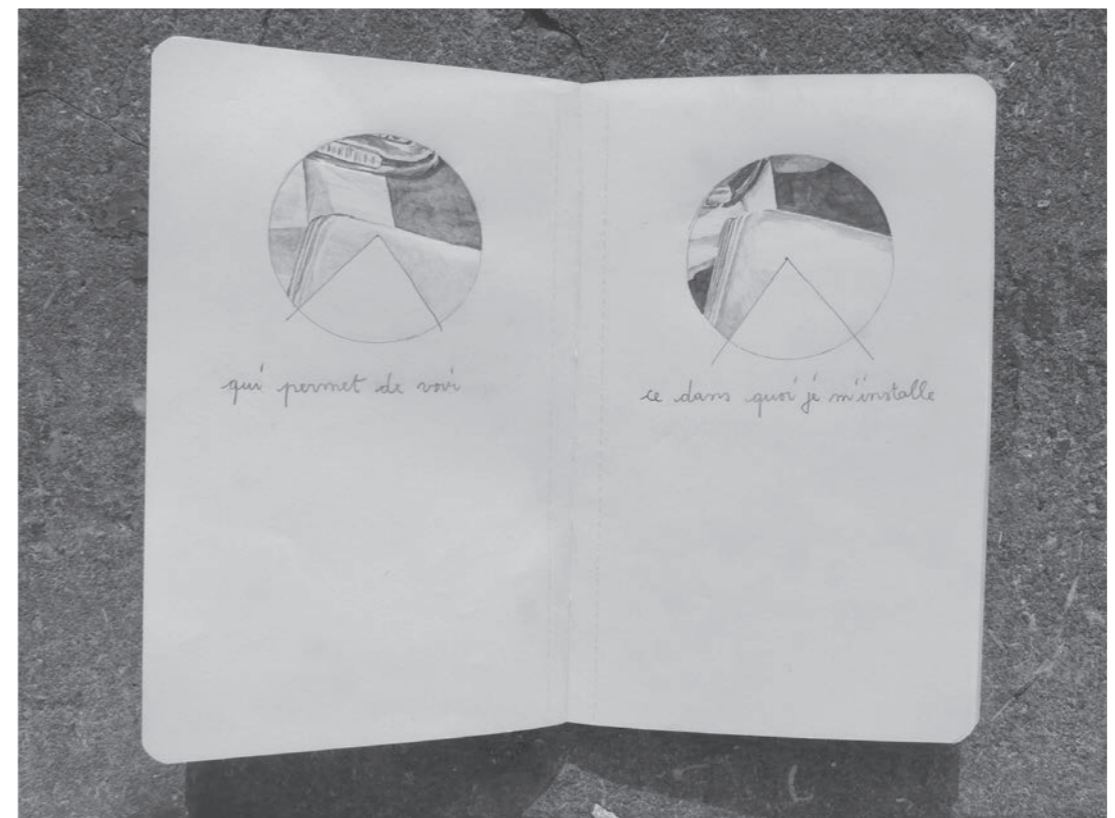 qui permet de voir
ce dans quoi je m'installe